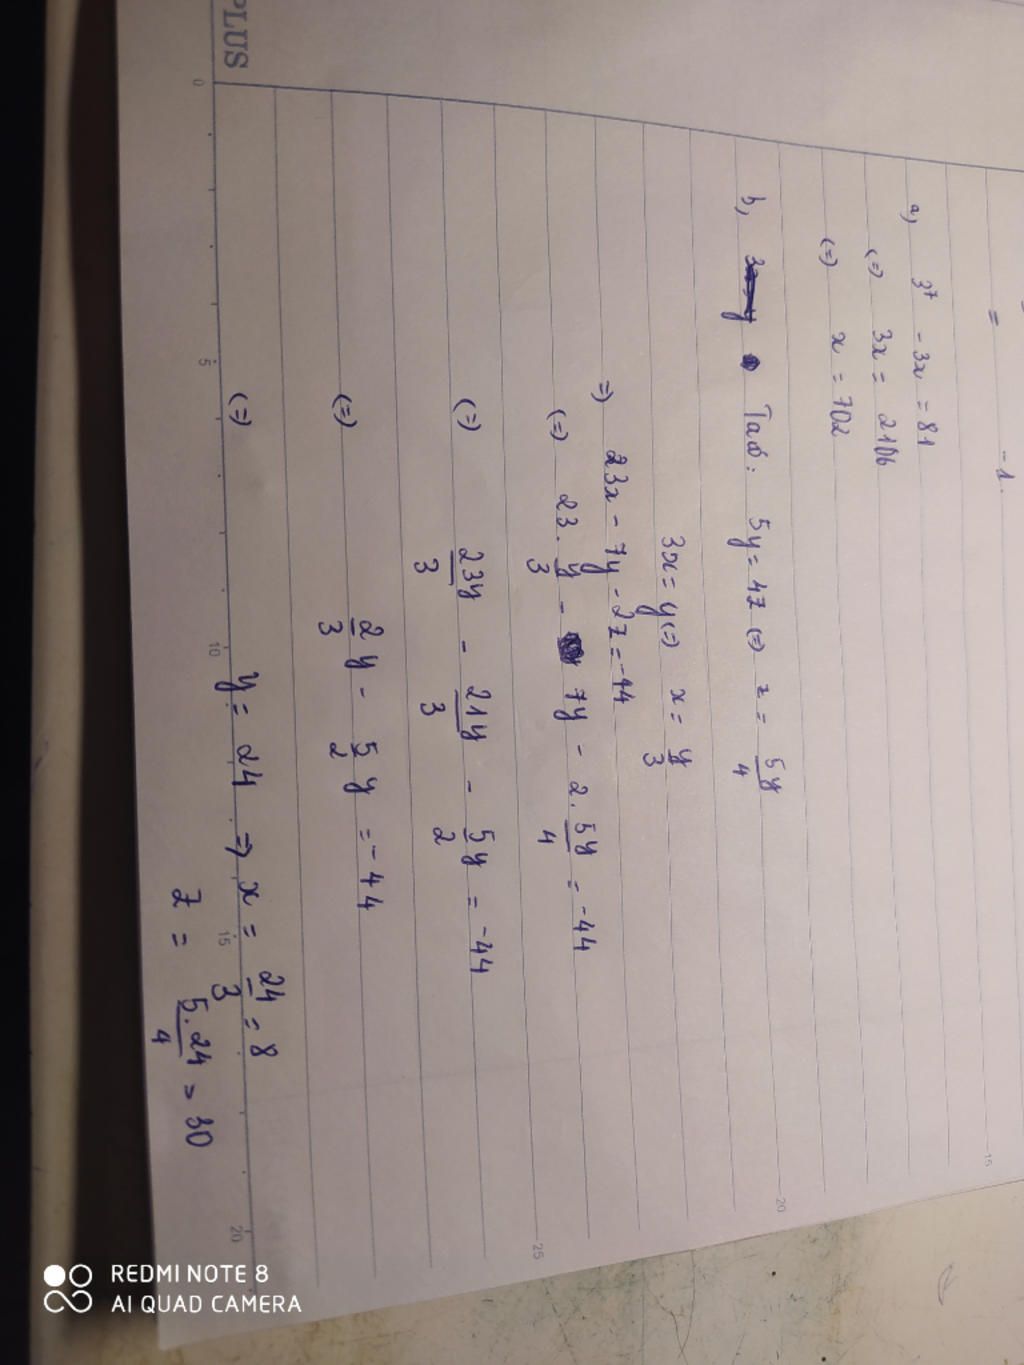 PLUS
=
-1.
a, 3⁷ - 3x = 81
(=) 3x = 2106
(=) x = 702
b, Ta có: 5y = 4z (=) z = 5y/4
3x = y (=) x = y/3
=) 23x - 7y - 2z = -44
(=) 23. y/3 - 7y - 2. 5y/4 = -44
(=) 23y/3 - 21y/3 - 5y/2 = -44
(=) 2/3 y - 5/2 y = -44
(=) y = 24 => x = 24/3 = 8
z = 5.24/4 = 30
0 5 10 15 20
15
20
25
REDMI NOTE 8
AI QUAD CAMERA